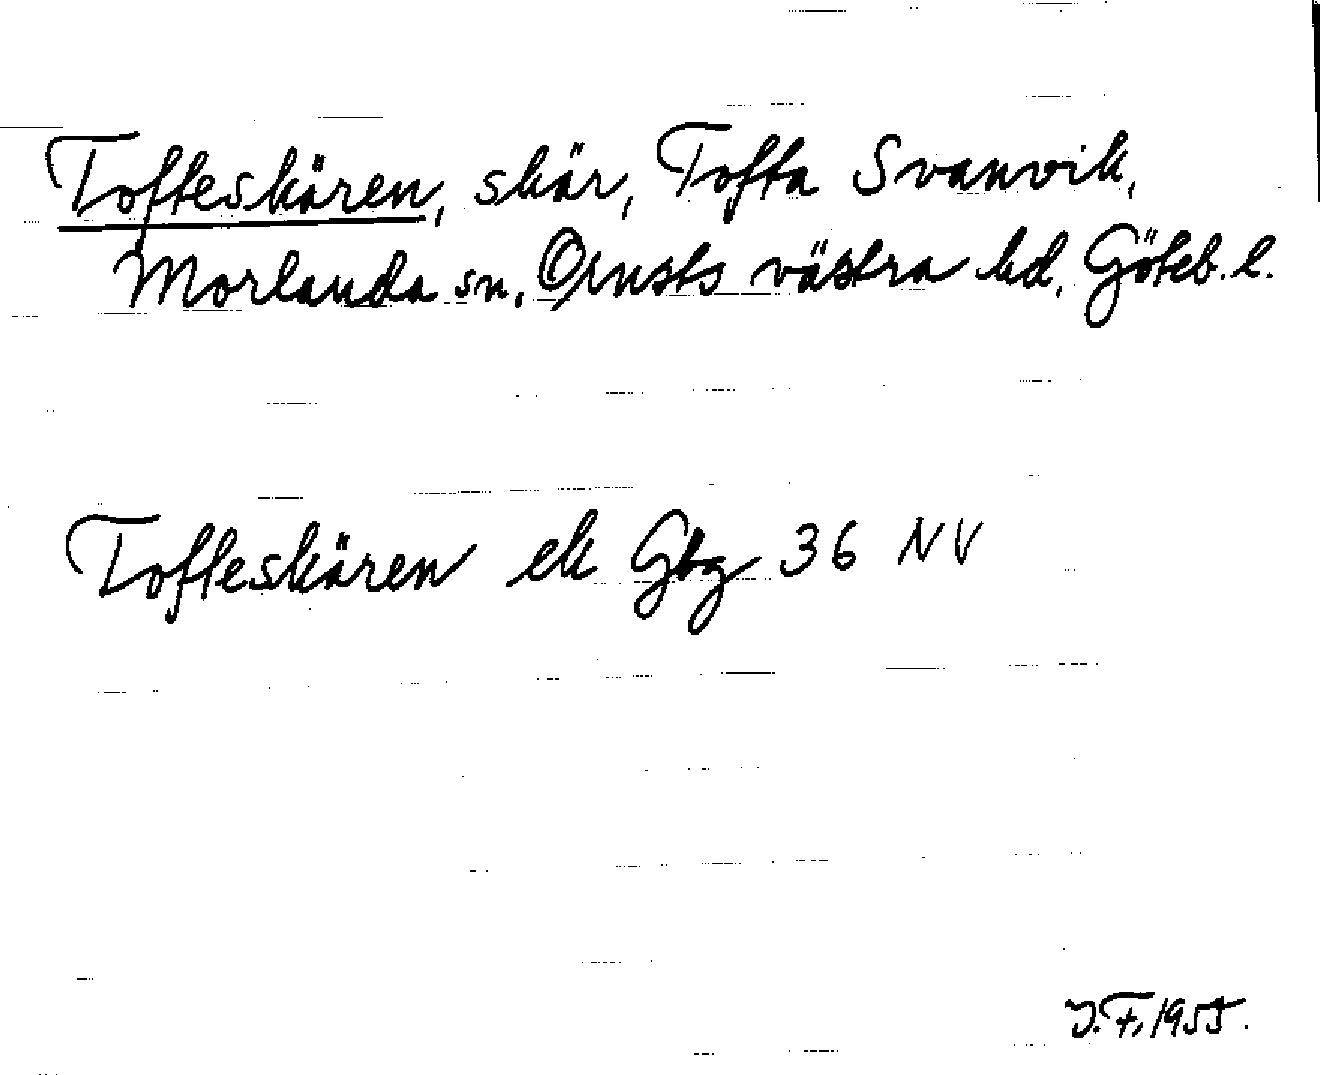 Tofteskären, skär, Tofta Svanvik,
Morlanda sn, Orusts västra hd, Göteb. l.
Tofteskären ek Gbg 36 NV
J.F. 1955.